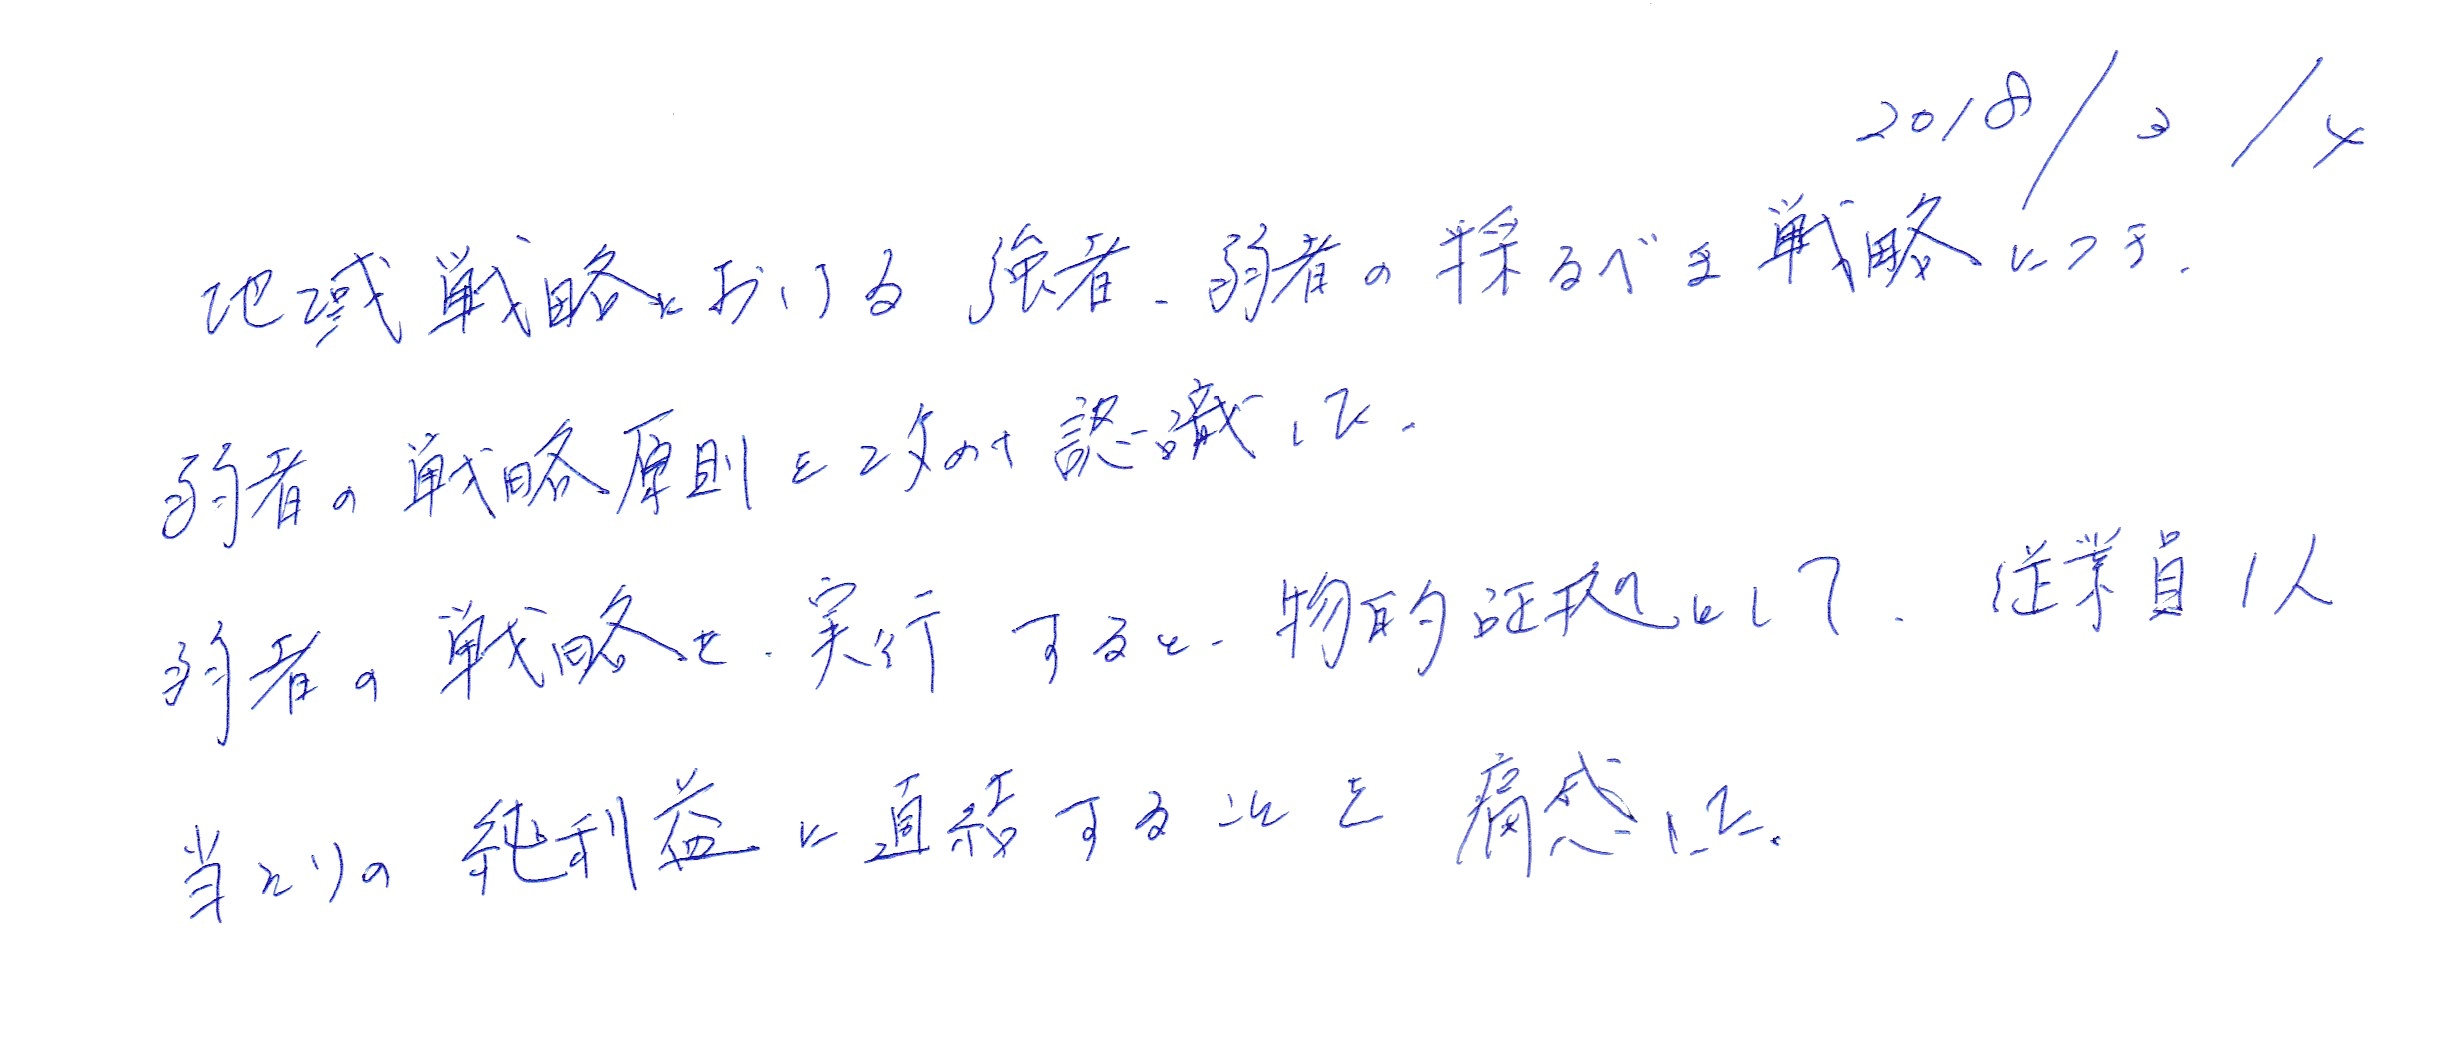 2018/3/4
地域戦略における強者、弱者の採るべき戦略につき、
弱者の戦略原則を改めて認識した。
弱者の戦略を、実行すると、物的証拠として、従業員1人
当たりの純利益に直結することを痛感した。